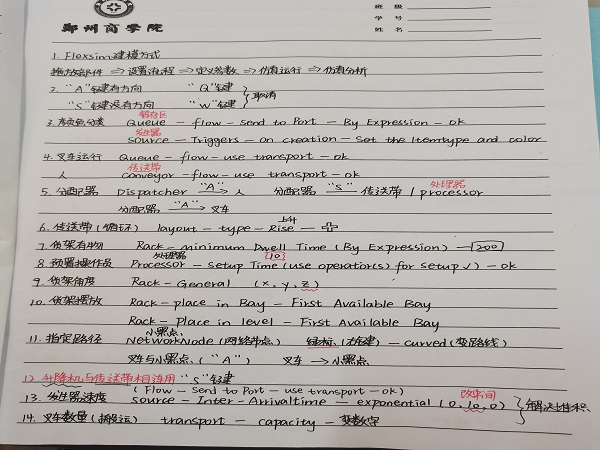 郑州商学院
班 级
学 号
姓 名
1. Flexsim建模方式
拖放部件 ⇒ 设置流程 ⇒ 定义参数 ⇒ 仿真运行 ⇒ 仿真分析
2. "A"键建有方向 "Q"键
"S"键没有方向 "W"键 } 取消
暂存区
3. 颜色分类 Queue - flow - Send to Port - By Expression - ok
发生器
Source - Triggers - on creation - Set the Itemtype and color
4. 叉车运行 Queue - flow - use transport - ok
传送带
人 conveyor - flow - use transport - ok
处理器
5. 分配器 Dispatcher "A" → 人 分配器 "S" → 传送带 / processor
分配器 "A" → 叉车
上升
6. 传送带(循环) layout - type - Rise
7. 货架有物 Rack - minimum Dwell Time (By Expression) - 200
处理器 10
8. 预置操作员 Processor - Setup Time (use operator(s) for setup √) - ok
9. 货架角度 Rack - General (x, y, z)
10. 货架摆放 Rack - place in Bay - First Available Bay
Rack - Place in level - First Available Bay
小黑点
11. 指定路径 NetworkNode (网络节点) (右键) - curved (变路线)
叉车与小黑点 ("A") 叉车 → 小黑点
12. 升降机与传送带相连用 "S"键
(Flow - Send to Port - use transport - ok)
改时间
13. 发生器速度 source - Inter-Arrivaltime - exponential (0, 10, 0) } 解决堆积
14. 叉车数量(搬运) transport - capacity - 变数字